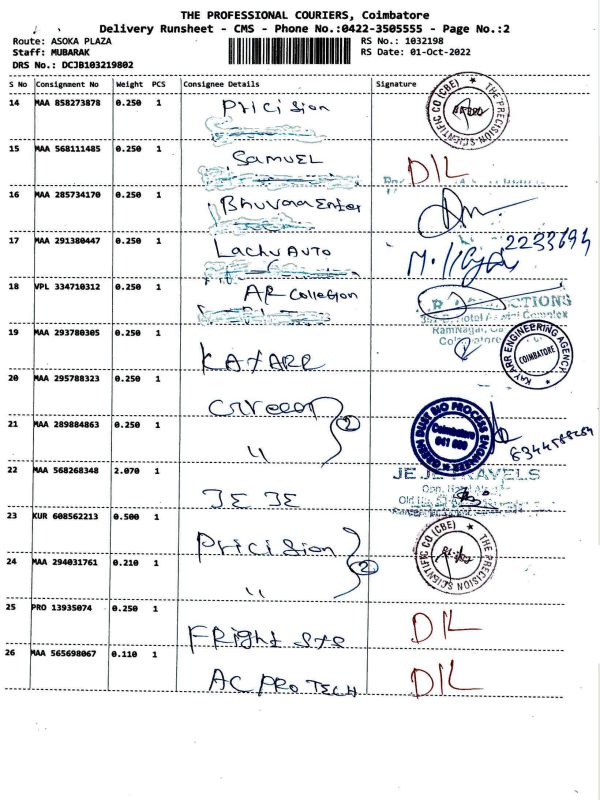 THE PROFESSIONAL COURIERS, Coimbatore
Delivery Runsheet - CMS - Phone No.:0422-3505555 - Page No.:2
Route: ASOKA PLAZA RS No.: 1032198
Staff: MUBARAK RS Date: 01-Oct-2022
DRS No.: DCJB103219802
S No Consignment No Weight PCS Consignee Details Signature
14 MAA 858273878 0.250 1 Pricision
THE PRECISION SCIENTIFIC CO (CBE)
15 MAA 568111485 0.250 1 SAMUEL DIL
16 MAA 285734170 0.250 1 Bhuvana Enter
17 MAA 291380447 0.250 1 Lachu AUTO 2233694
18 VPL 334710312 0.250 1 AR Collection
19 MAA 293780305 0.250 1 KAYARR
KAY ARR ENGINEERING AGENCY COIMBATORE
20 MAA 295788323 0.250 1
21 MAA 289884863 0.250 1 " 2
GREEN DUST BIO PROCESS ENGINEERS Coimbatore
22 MAA 568268348 2.070 1 JE JE
JE JE TRAVELS
23 KUR 608562213 0.500 1 Pricision
24 MAA 294031761 0.210 1 " 2
THE PRECISION SCIENTIFIC CO (CBE)
25 PRO 13935074 0.250 1 FRight sys DIL
26 MAA 565698067 0.110 1 AC PRO TECH DIL